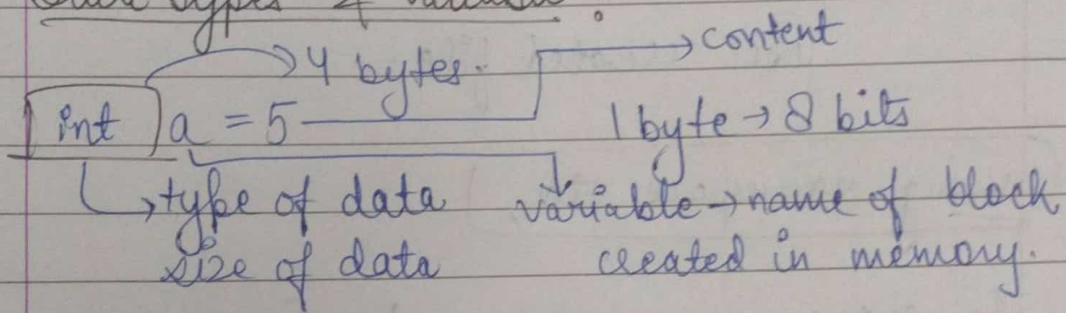 types
→ 4 bytes.
→ content
int a = 5
1 byte → 8 bits
→ type of data
size of data
variable → name of block
created in memory.